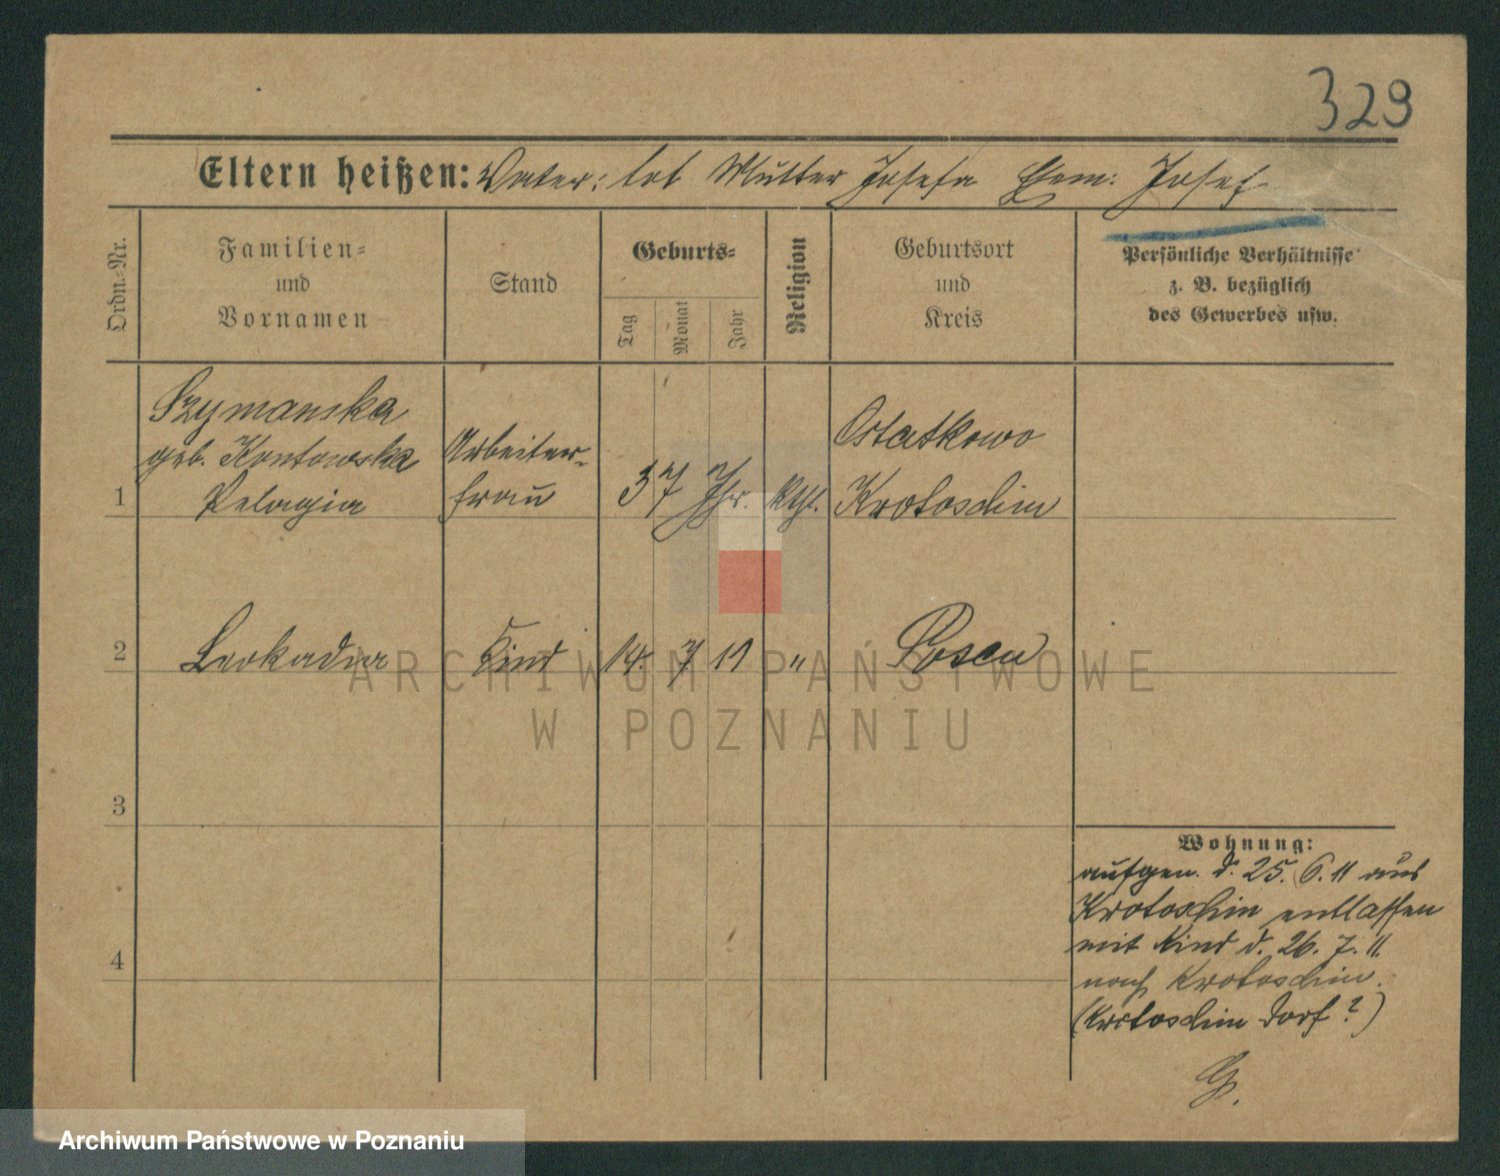 329
Eltern heißen: Vater: tot Mutter Josefa Ehem: Josef
Ordn.-Nr.
Familien-
und
Vornamen
Stand
Geburts-
Tag
Monat
Jahr
Religion
Geburtsort
und
Kreis
Persönliche Verhältnisse
z. B. bezüglich
des Gewerbes usw.
1
Szymanska
geb. Kontowska
Pelagia
Arbeiter-
frau
37 Jhr.
kth.
Ostatkowo
Krotoschin
2
Leokadia
Kind
14. 7 11
"
Posen
3
4
Wohnung:
aufgen. d. 25. 6. 11 aus
Krotoschin entlassen
mit Kind d. 26. 7. 11.
nach Krotoschin.
(Krotoschin Dorf?)
G.
ARCHIWUM PAŃSTWOWE
W POZNANIU
Archiwum Państwowe w Poznaniu